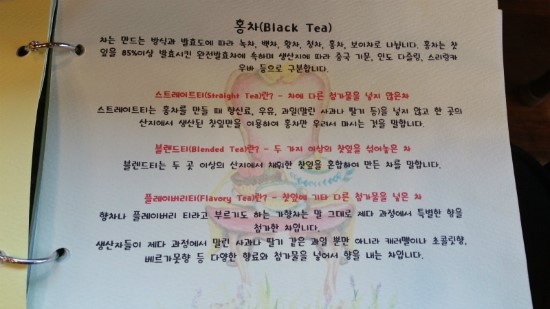 홍차(Black Tea)
차는 만드는 방식과 발효도에 따라 녹차, 백차, 황차, 청차, 홍차, 보이차로 나뉩니다. 홍차는 찻
잎을 85%이상 발효시킨 완전발효차에 속하며 생산지에 따라 중국 기문, 인도 다즐링, 스리랑카
우바 등으로 구분합니다.
스트레이트티(Straight Tea)란? - 차에 다른 첨가물을 넣지 않은차
스트레이트티는 홍차를 만들 때 향신료, 우유, 과일(말린 사과나 딸기 등)을 넣지 않고 한 곳의
산지에서 생산된 찻잎만을 이용하여 홍차만 우려서 마시는 것을 말합니다.
블렌드티(Blended Tea)란? - 두 가지 이상의 찻잎을 섞어놓은 차
블렌드티는 두 곳 이상의 산지에서 채취한 찻잎을 혼합하여 만든 차를 말합니다.
플레이버리티(Flavory Tea)란? - 찻잎에 기타 다른 첨가물을 넣은 차
향차나 플레이버리 티라고 부르기도 하는 가향차는 말 그대로 제다 과정에서 특별한 향을
첨가한 차입니다.
생산자들이 제다 과정에서 말린 사과나 딸기 같은 과일 뿐만 아니라 캐러멜이나 초콜릿향,
베르가못향 등 다양한 향료와 첨가물을 넣어서 향을 내는 차입니다.